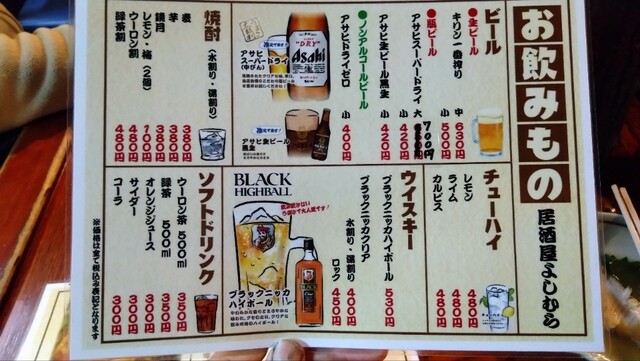 お飲みもの
居酒屋よしむら
ビール
●生ビール
キリン一番搾り 中 630円
小 500円
●瓶ビール
アサヒスーパードライ 大 700円
小 420円
アサヒ生ビール黒生 小 420円
●ノンアルコールビール
アサヒドライゼロ 小 400円
アサヒ
スーパードライ
(中びん)
"DRY"
Asahi
冷えてます!
アサヒ生ビール
黒生
焼酎
(水割り・湯割り)
麦 380円
芋 380円
鏡月 380円
レモン・梅(2個) 100円
ウーロン割 480円
緑茶割 480円
チューハイ
レモン 480円
ライム 480円
カルピス 480円
ウイスキー
ブラックニッカハイボール 530円
ブラックニッカクリア
水割り・湯割り 400円
ロック 450円
BLACK
HIGHBALL
ブラックニッカ
ハイボール
ソフトドリンク
ウーロン茶 500ml 350円
緑茶 500ml 350円
オレンジジュース 300円
サイダー 300円
コーラ 300円
※価格は全て税込み表記となります